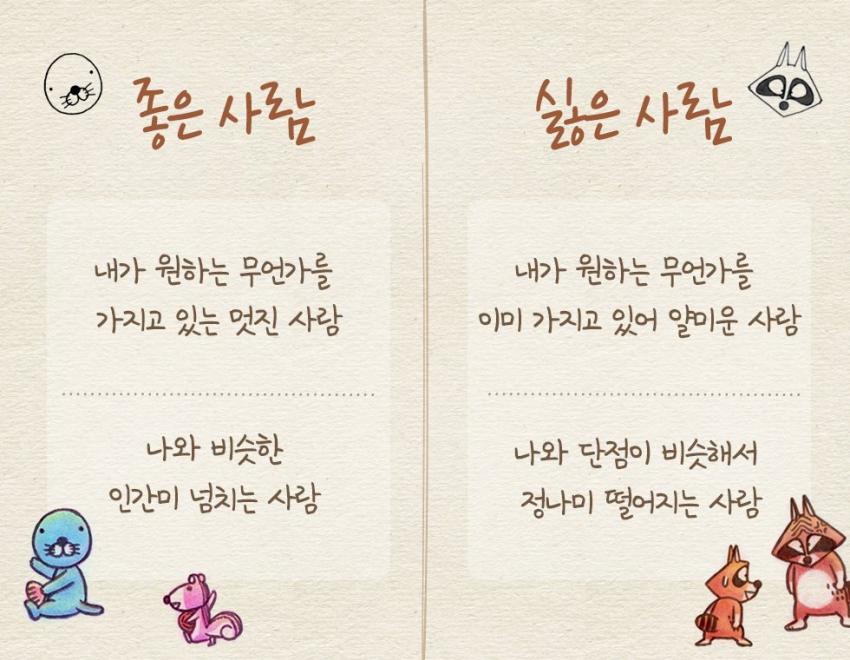 좋은 사람
내가 원하는 무언가를
가지고 있는 멋진 사람
나와 비슷한
인간미 넘치는 사람
싫은 사람
내가 원하는 무언가를
이미 가지고 있어 얄미운 사람
나와 단점이 비슷해서
정나미 떨어지는 사람